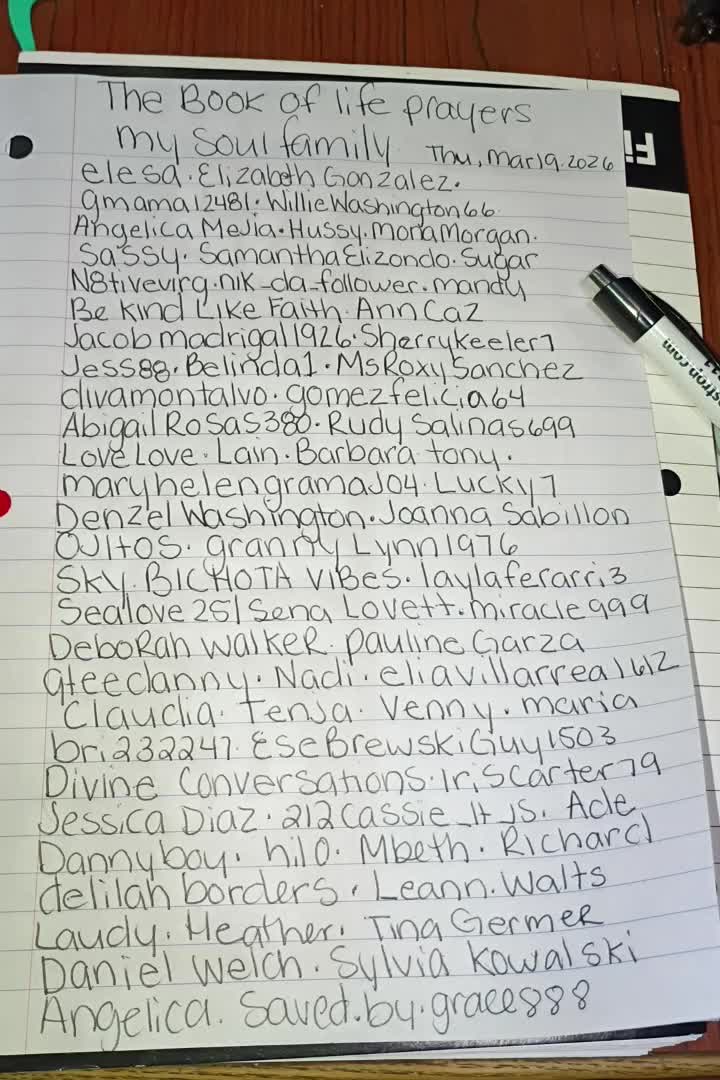 The Book of life prayers
my soul family Thu, Mar 19. 2026
elesa. Elizabeth Gonzalez.
gmama12481. Willie Washington66.
Angelica Mejia. Hussy. mona Morgan.
Sassy. Samantha Elizondo. Sugar
N8tivevirg. nik_da_follower. mandy
Be kind Like Faith. Ann Caz
Jacob madrigal1926. Sherrykeeler7
Jess88. Belinda1. MsRoxySanchez
divamontalvo. gomezfelicia64
Abigail Rosas380. Rudy Salinas699
Love Love. Lain. Barbara tony.
maryhelengramaJ04. Lucky7
Denzel Washington. Joanna Sabillon
OJitos. granny Lynn1976
Sky. BICHOTA VIBes. laylaferarri3
Sealove251 Sena Lovett. miracle999
Deborah walker. pauline Garza
gteedanny. Nadi. eliavillarreal612
Claudia. Tenja. Venny. maria
bri232247. EseBrewskiGuy1503
Divine Conversations. IrisCarter79
Jessica Diaz. 212Cassie_It_is. Ade
Dannyboy. hilo. Mbeth. Richard
delilah borders. Leann. Walts
Laudy. Heather. Tina Germer
Daniel Welch. Sylvia Kowalski
Angelica. Saved.by.grace888